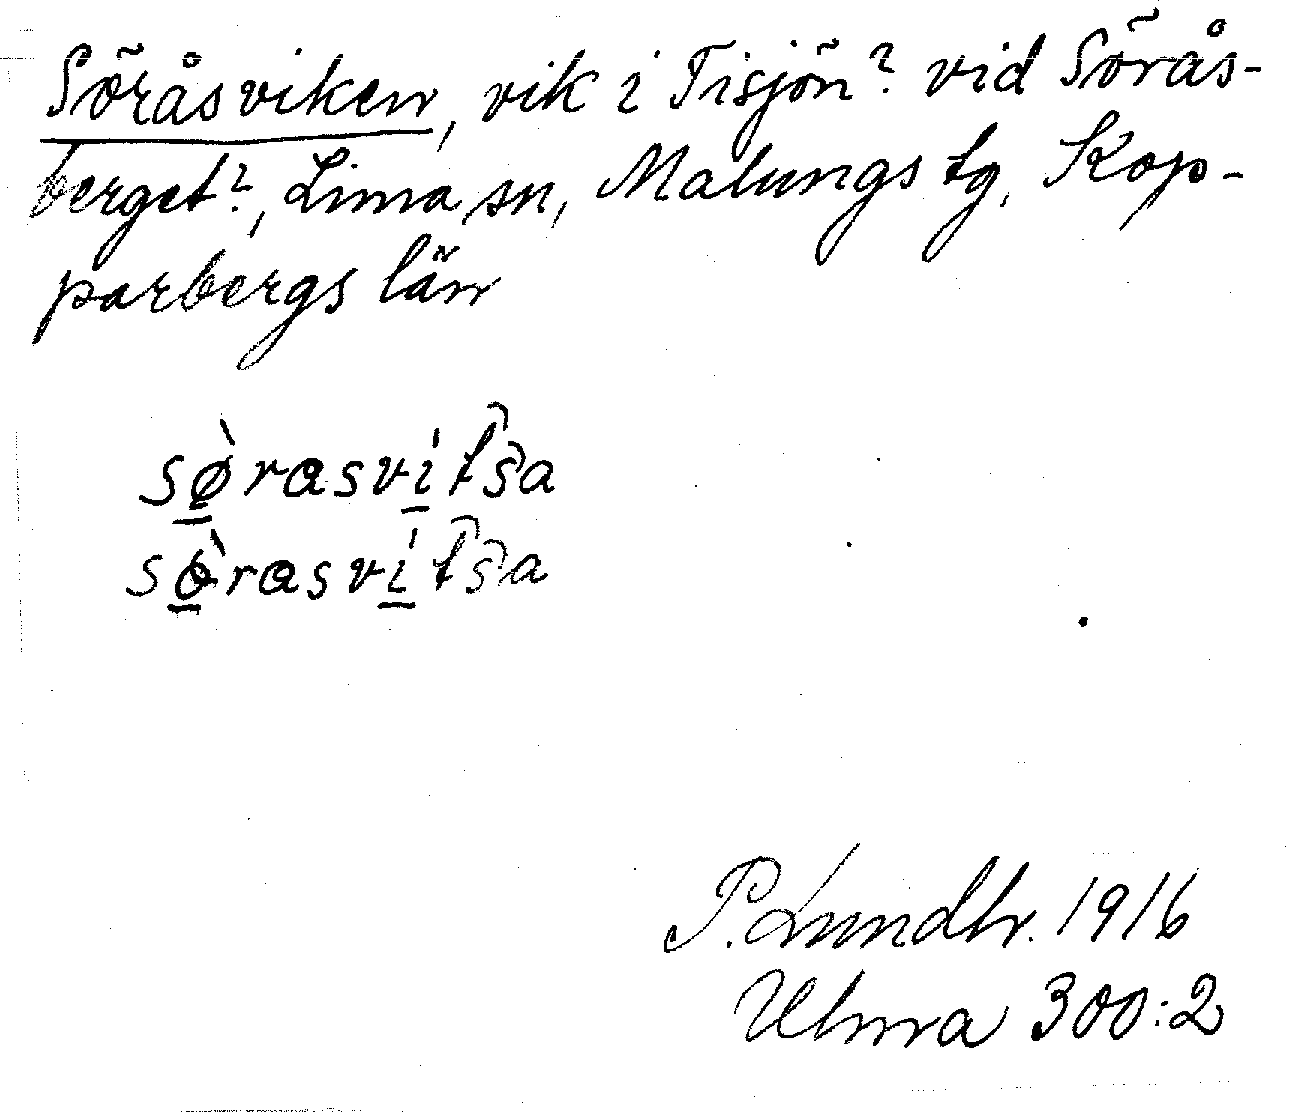 Söråsviken, vik i Tisjön? vid Sörås-
berget?, Lima sn, Malungs tg, Kop-
parbergs län
sø̠̀rasvi̠tša
sö̠̀rasvi̠tša
P. Lundbr. 1916
Ulma 300:2